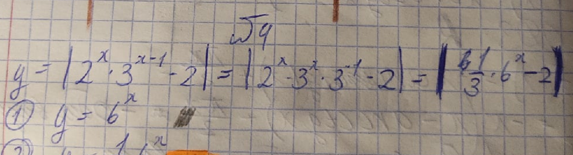 √9
y = |2^x · 3^{x-1} - 2| = |2^x · 3^x · 3^{-1} - 2| = |1/3 · 6^x - 2|
① y = 6^x